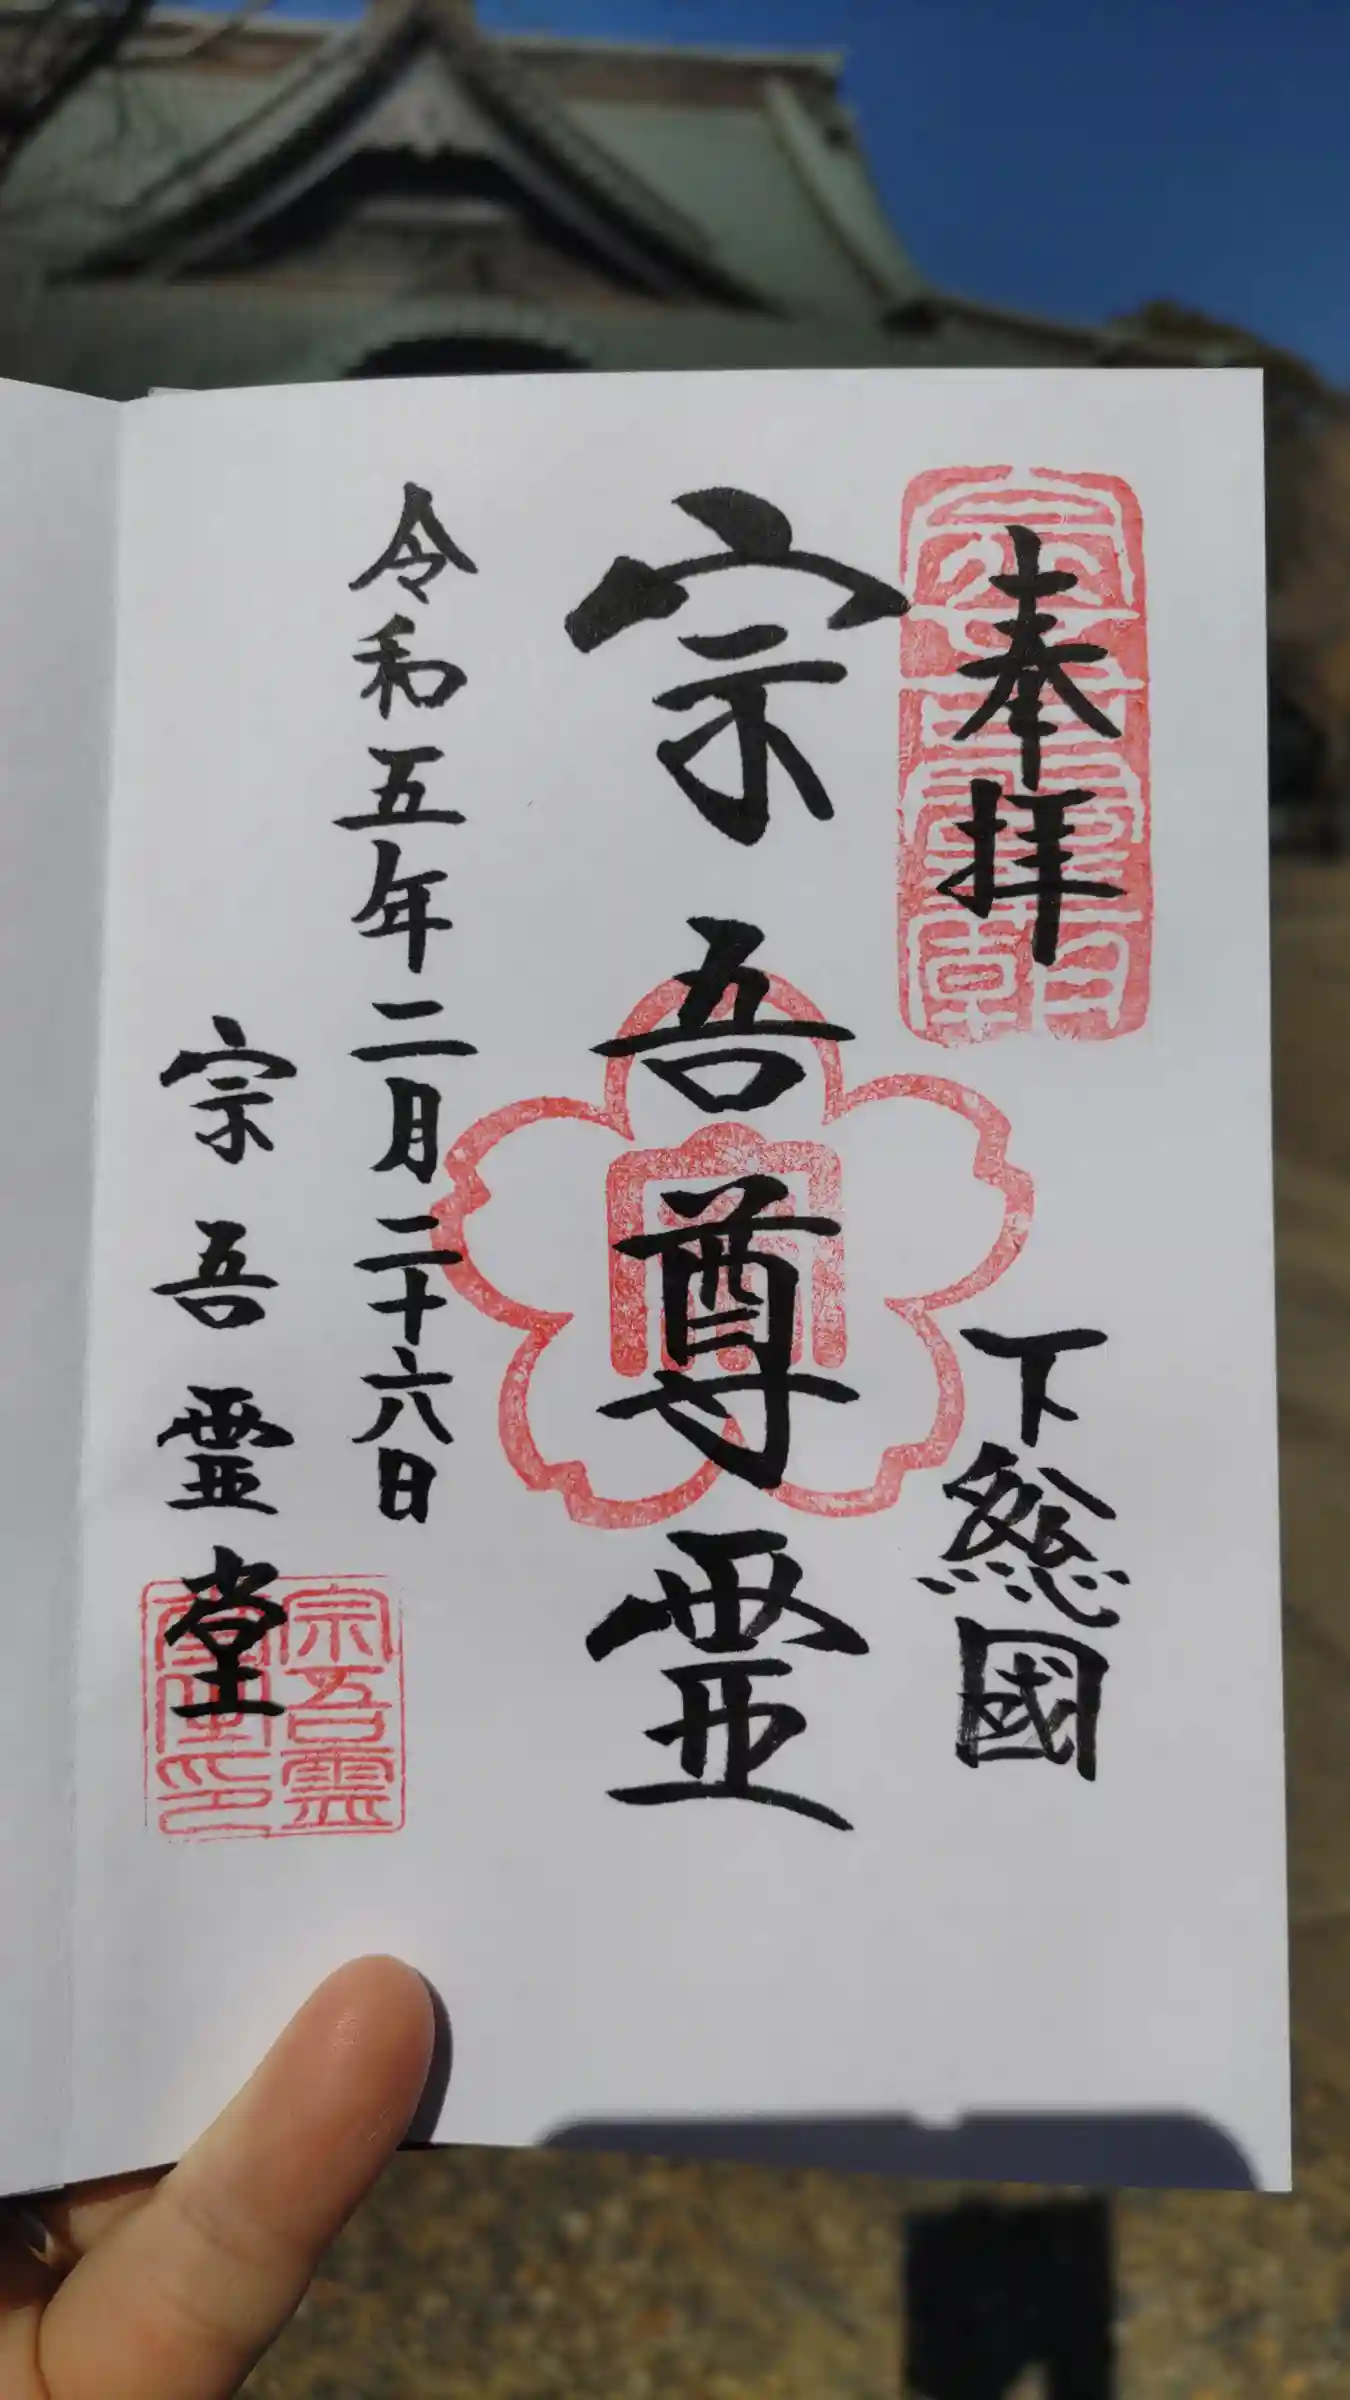 奉拝
下総國
宗吾尊霊
令和五年二月二十六日
宗吾霊堂
宗吾霊
堂之印